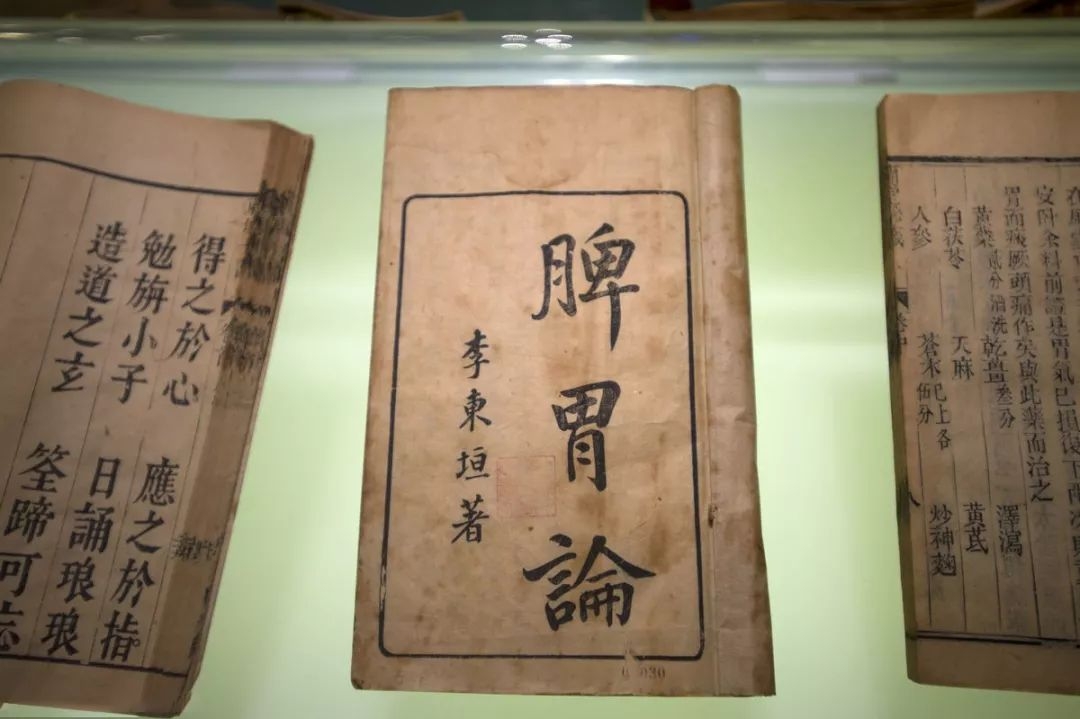 得之於心 應之於指
勉旃小子 日誦琅琅
造道之玄 筌蹄可
脾胃論
李東垣著
030
安卧余料前證是胃氣已損復下兩次
胃而痰厥頭痛作矣與此藥而治之
黃蘗貳分酒洗 乾薑叁分 澤瀉
白茯苓 天麻 黃芪
人參 蒼木已上各伍分 炒神麴